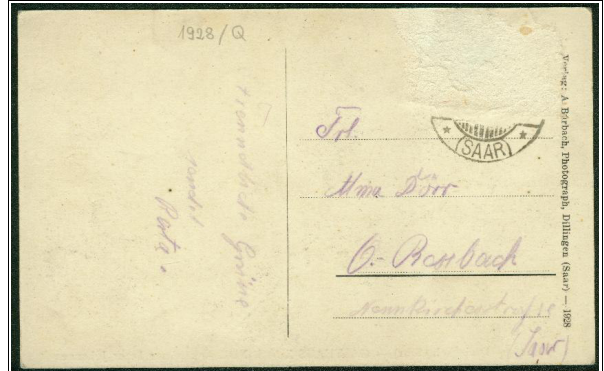 1928/Q
freundliche Grüße
sendet
Frl.
Dörr
O.-Bexbach
Neunkircherstraße
(Saar)
(SAAR)
Verlag: A. Borbach, Photograph, Dillingen (Saar) — 1928